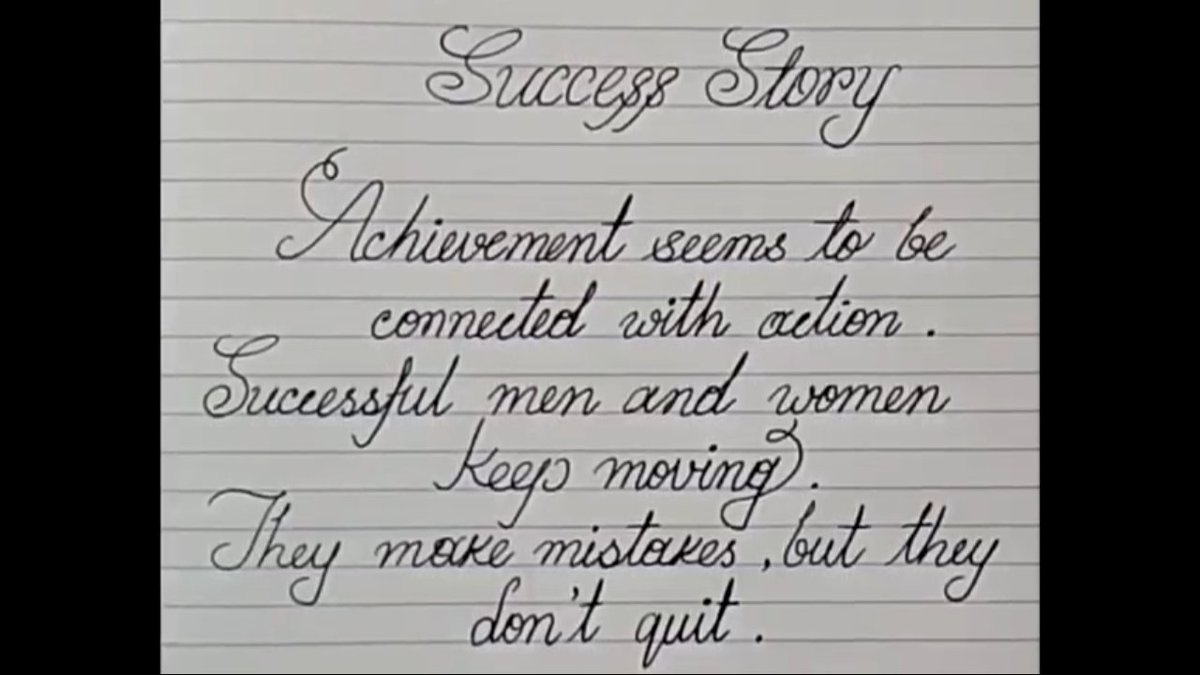 Success Story
Achievement seems to be
connected with action .
Successful men and women
keep moving .
They make mistakes , but they
don't quit .